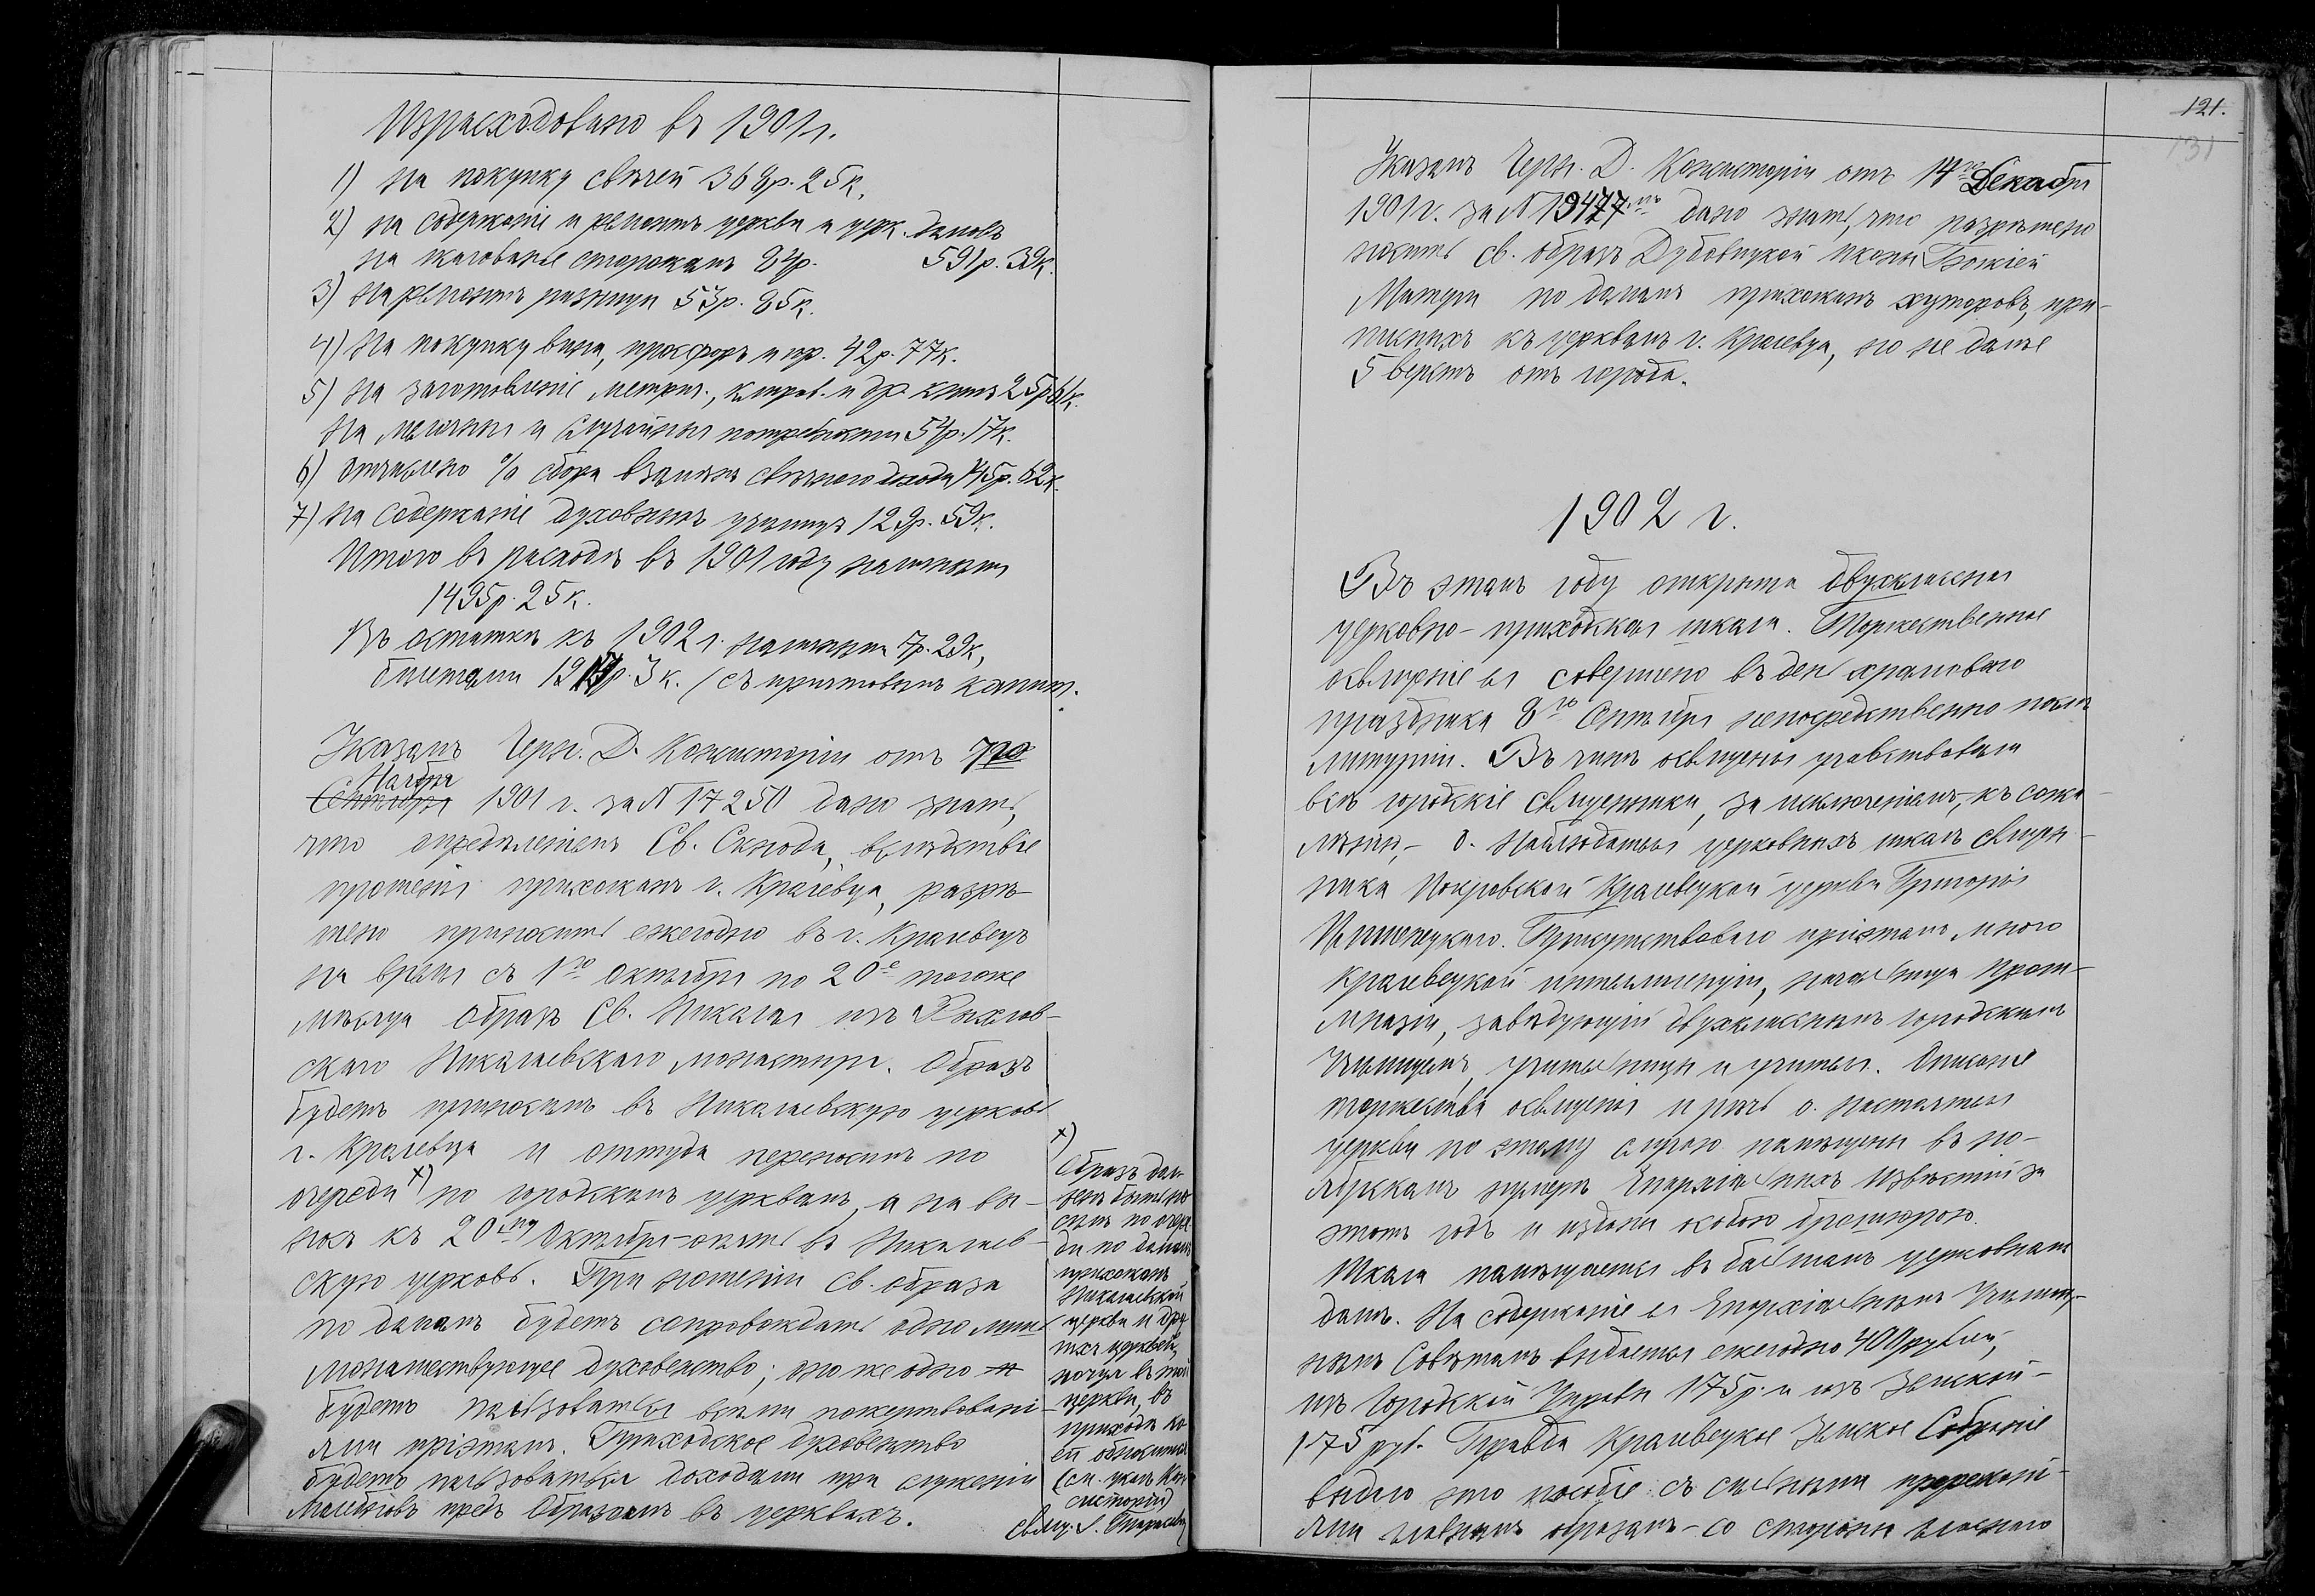 Израсходовано въ 1901 г.
1) На покупку свѣчей 368р. 25к.
2) на содержаніе и ремонтъ церкви и церк. домовъ
на жалованье сторожамъ 84р. 591р. 39к.
3) На ремонтъ ризницы 53р. 85к.
4) На покупку вина, просфоръ и пр. 42р. 77к.
5) На заготовленіе метрич., и др. книгъ 25р.
На мелочныя и случайныя потребности 54р. 17к.
6) отчислено % сбора взамѣнъ свѣчного дохода 145р. 62к.
7) На содержаніе духовныхъ училищъ 129р. 59к.
Итого въ расходѣ въ 1901 году наличными
1495р. 25к.
Въ остаткѣ къ 1902 г. наличными 7р. 29к,
билетами р. 3к. (съ причтовымъ капит.
Указомъ Черн. Д. Консисторіи отъ 7го
Ноября
Сентября 1901 г. за № 17250 дано знать,
что опредѣленіемъ Св. Синода, вслѣдствіе
прошенія прихожанъ г. Кролевца, разрѣ-
шено приносить ежегодно въ г. Кролевецъ
на время съ 1го Октября по 20е тогоже
мѣсяца Образъ Св. Николая изъ Рыхлов-
скаго Николаевскаго монастыря. Образъ
будетъ приносимъ въ Николаевскую церковь
г. Кролевца и оттуда переносимъ по
очереди x) по городскимъ церквамъ, а на вы-
носъ къ 20му Октября - опять въ Николаев-
скую церковь. При ношеніи св. образа
по домамъ будетъ сопровождать одно лишь
монашествующее духовенство; оно же одно и
будетъ пользоваться всѣми пожертвовані-
ями при этомъ. Приходское духовенство
будетъ пользоваться доходами при служеніи
молебновъ предъ Образомъ въ церквахъ.
x)
Образъ дол-
женъ быть но-
симъ по очере-
ди по домамъ
прихожанъ
Николаевской
церкви и дру-
гихъ церквей,
ночуя въ той
церкви, въ
приходѣ ко-
ей обносится
(см. указъ Кон-
систоріи)
Свящ. Л. Тарасевичъ
121.
131
Указомъ Черн. Д. Консисторіи отъ 14го Декабря
1901 г. за № 19477мъ дано знать, что разрѣшено
носить св. образъ Дубовицкой иконы Божіей
Матери по домамъ прихожанъ хуторовъ, при-
писныхъ къ церквамъ г. Кролевца, но не далѣе
5 верстъ отъ города.
1902 г.
Въ этомъ году открыта двухклассная
церковно-приходская школа. Торжественное
освященіе ея совершено въ день храмоваго
праздника 8го Сентября непосредственно послѣ
литургіи. Въ чинѣ освященія участвовали
всѣ городскіе священники, за исключеніемъ, - къ сожа-
лѣнію, - о. Наблюдателя церковныхъ школъ священ-
ника Покровской Кролевецкой церкви Григорія
Присутствовало при этомъ много
Кролевецкой интеллигенціи, начальница прог-
имназіи, завѣдующій двухкласснымъ городскимъ
Училищемъ, учительницы и учителя. Описаніе
торжества освященія и рѣчь о. настоятеля
церкви по этому случаю помѣщены въ но-
ябрьскомъ нумерѣ Епархіальныхъ Извѣстій за
этотъ годъ и изданы особою брошюрою.
Школа помѣщается въ большомъ церковномъ
домѣ. На содержаніе ея Епархіальнымъ Училищ-
нымъ Совѣтомъ выдается ежегодно 400 рублей,
изъ Городской Управы 175 р. и изъ Земской -
175 руб. Правда Кролевецкое Земское Собраніе
выдало это пособіе съ сильными пререкані-
ями главнымъ образомъ - со стороны гласнаго